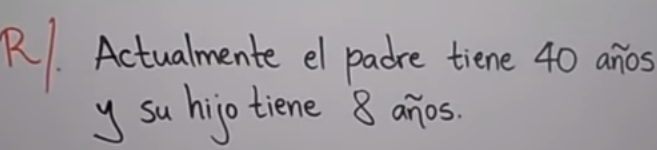 R/. Actualmente el padre tiene 40 años
y su hijo tiene 8 años.